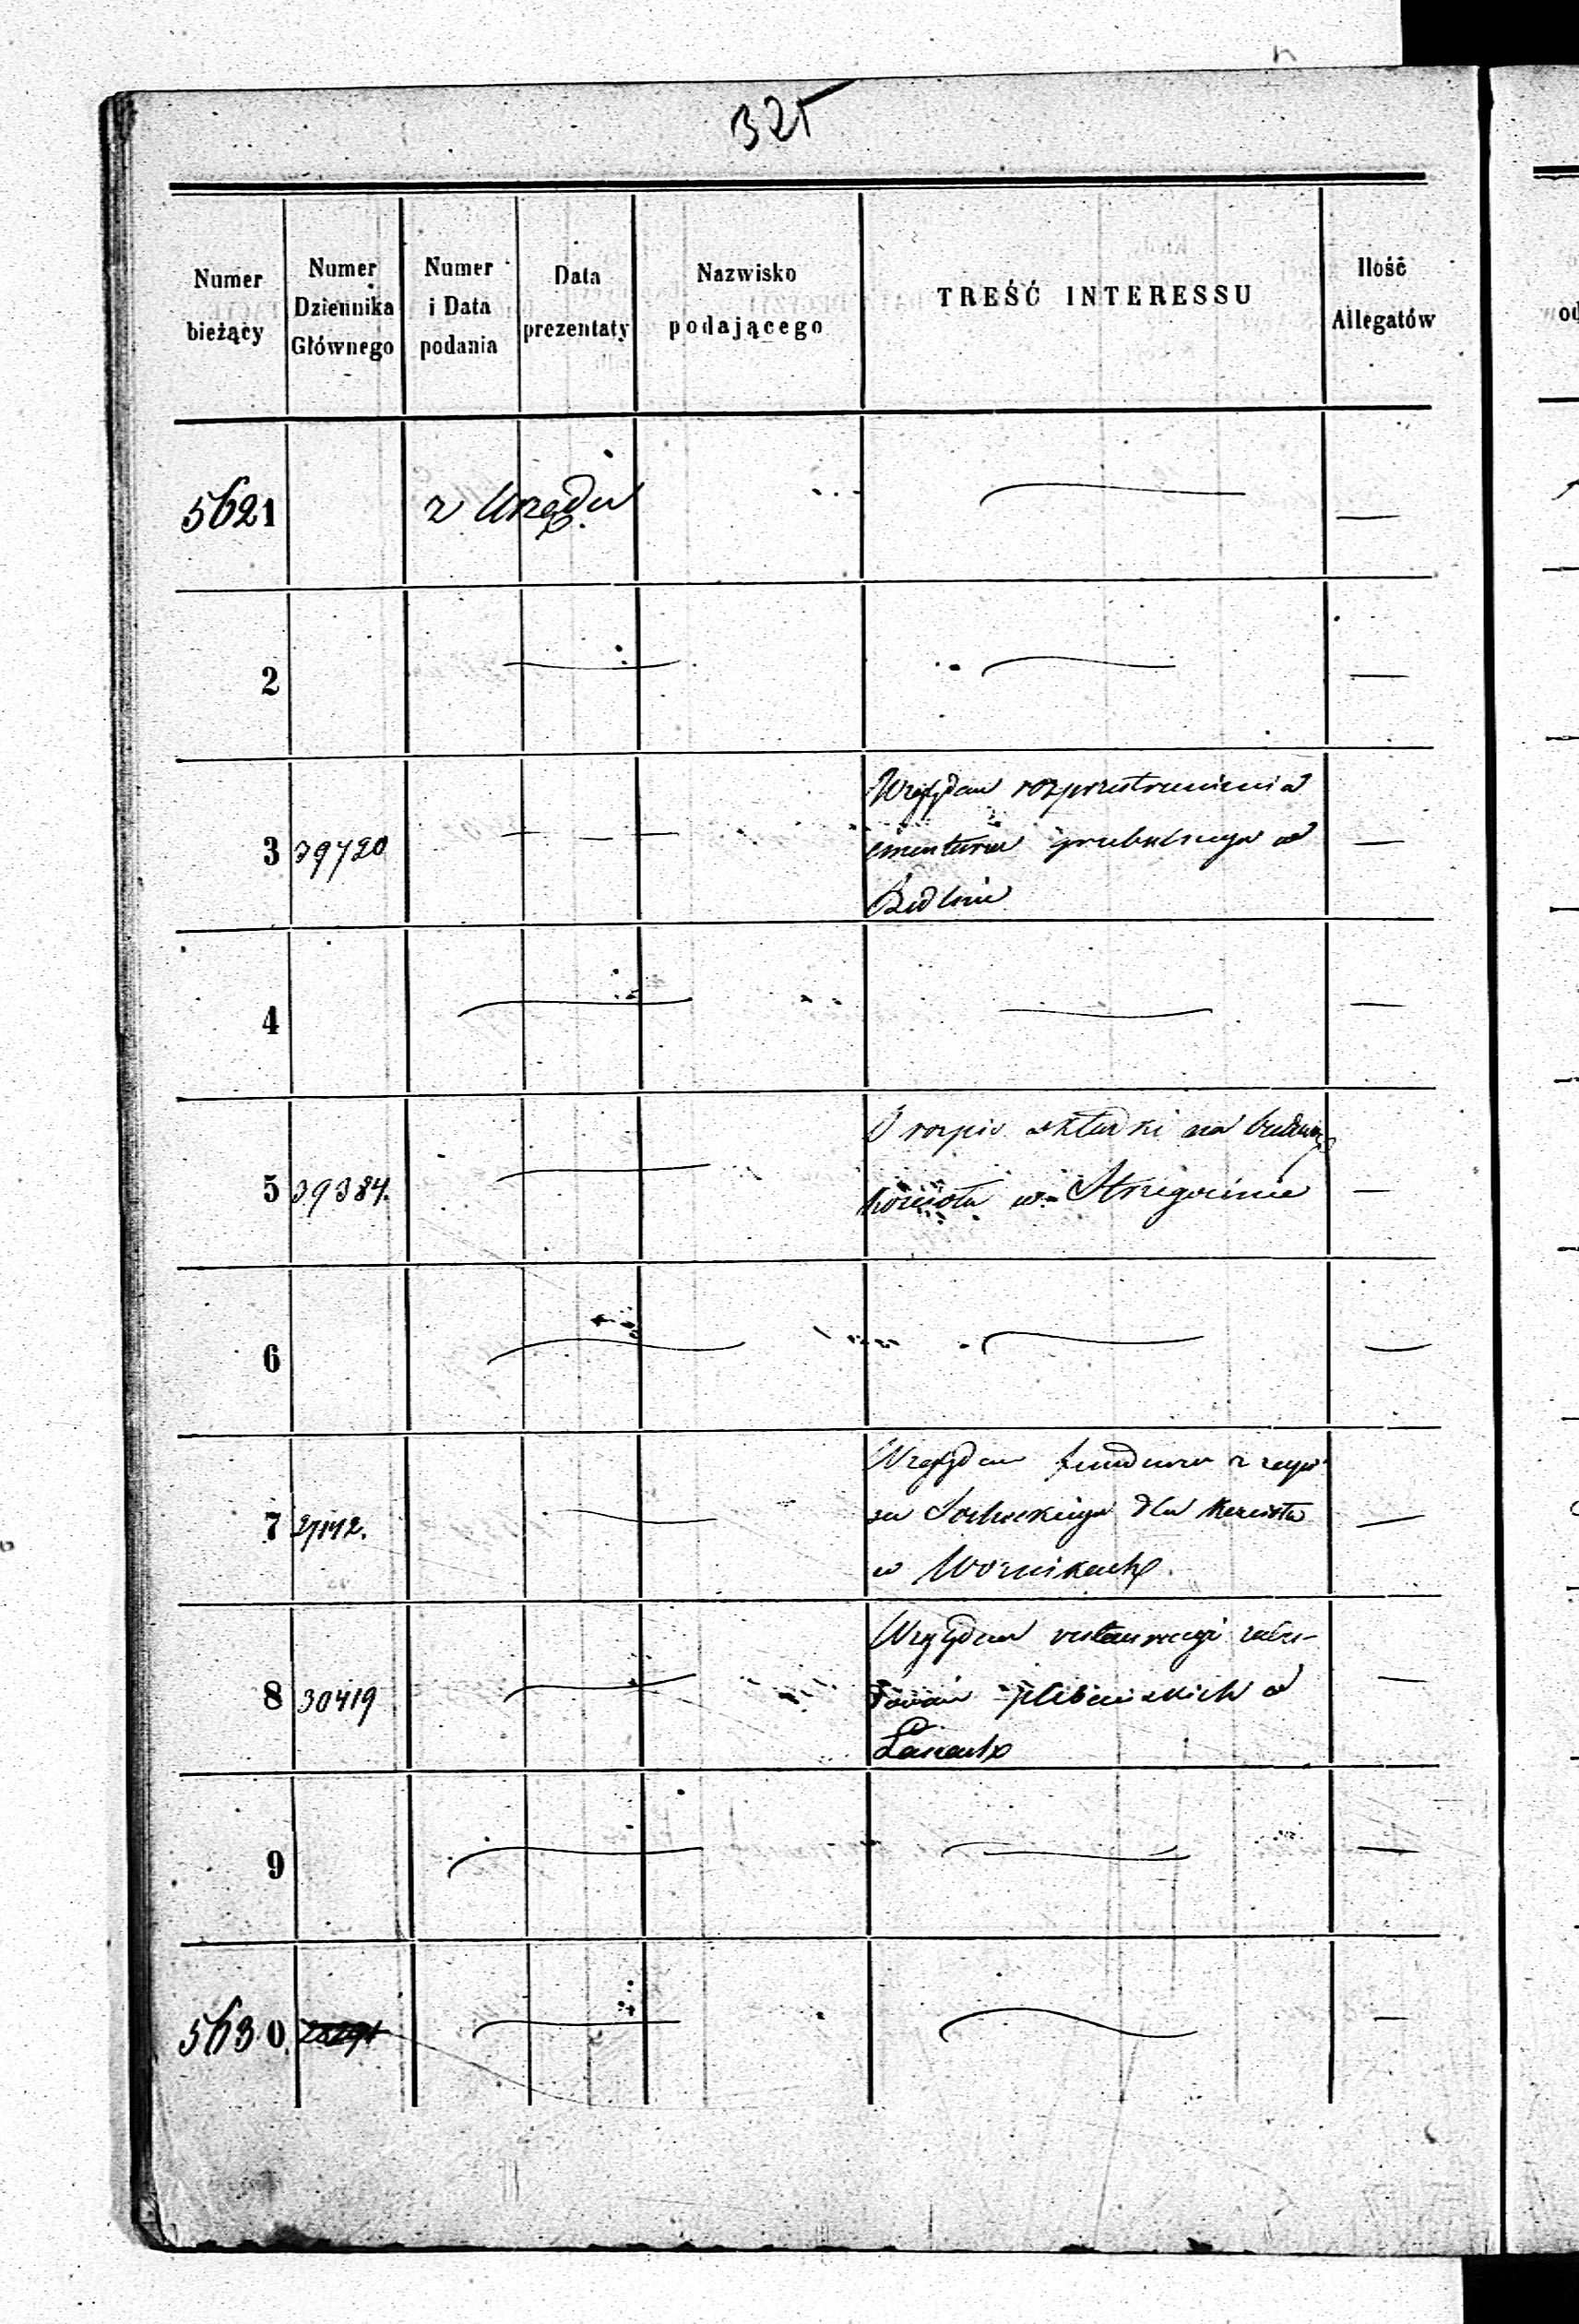 325
Numer bieżący
Numer Dziennika Głównego
Numer i Data podania
Data prezentaty
Nazwisko podającego
TREŚĆ INTERESSU
Ilość Allegatów
5621 z Urzędu — —
2 — — —
3 39720 — — — Względem rozprzestrzenienia —
cmentarza grzebalnego w
Bedlnie
4 — — —
5 39384. — O rozpis składki na budowę —
kościoła w Strzegocinie
6 — — —
7 — Względem funduszu z zapi-
su dla kościoła —
w Woźnikach
8 30419 — Względem restauracyi zabu- —
dowań plebańskich w
Łaskach
9 — — —
5630. — — —